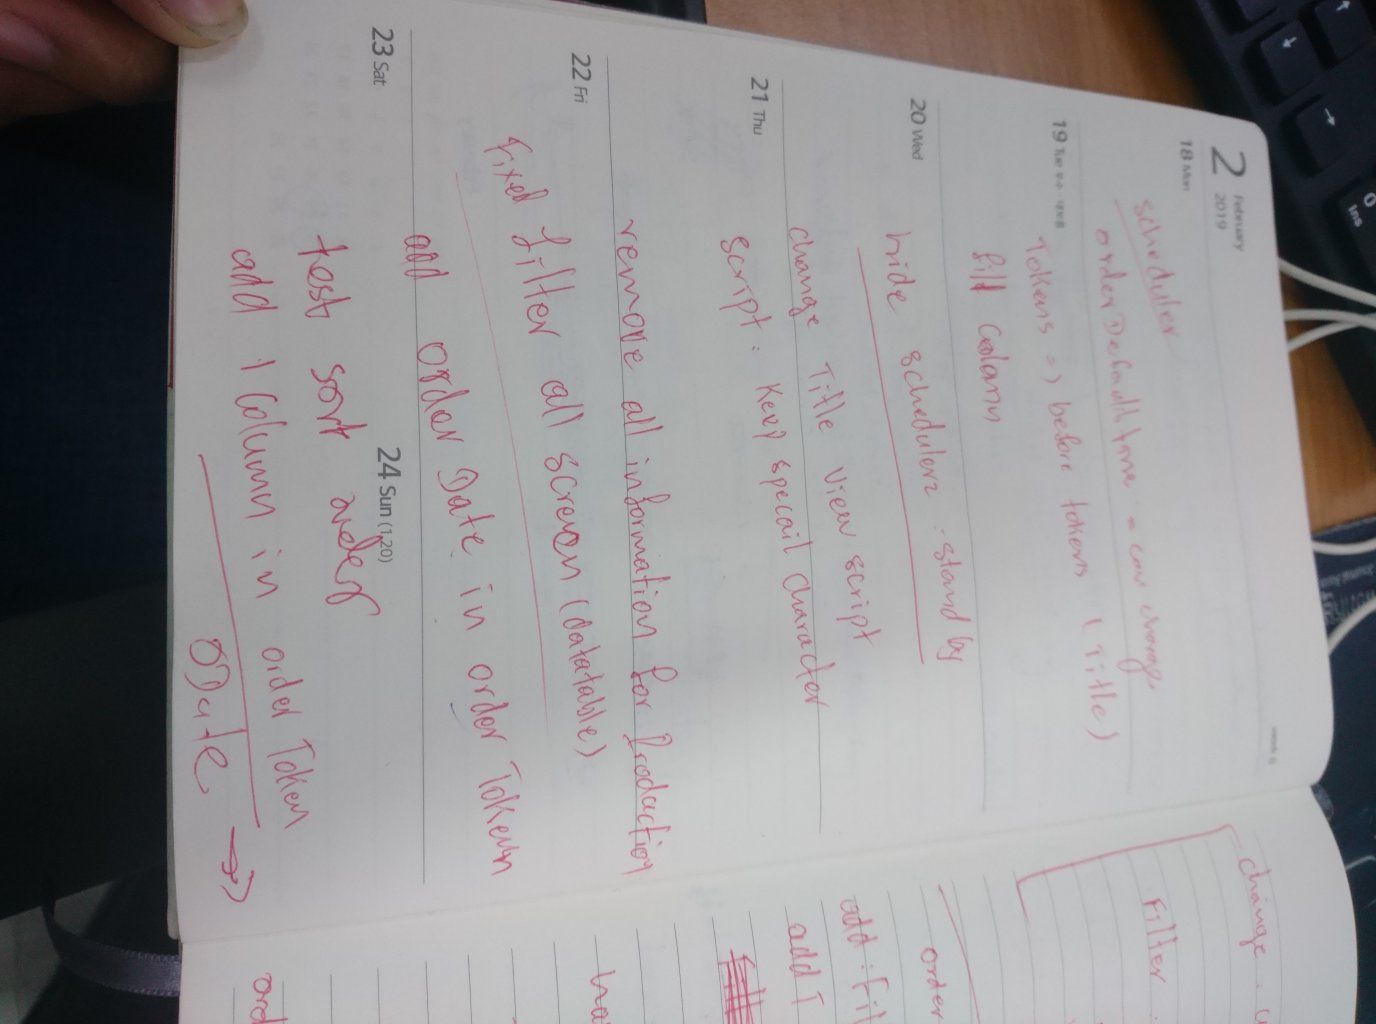 0
Ins
week 8
2 February
2019
18 Mon
scheduler
orderDefault time = can change
19 Tue
Tokens => before tokens (Title)
fill Colamn
20 Wed
hide scheduler2 : stand by
change Title View script
21 Thu
script : Keep specail character
remove all information for Production
22 Fri
Fixed filter all screen (datatable)
add order Date in order Token
23 Sat
24 Sun (1.20)
test sort order
add 1 Column in order Token
ODate →
change .
Filter
order
add : Fil
add T
ha
ord